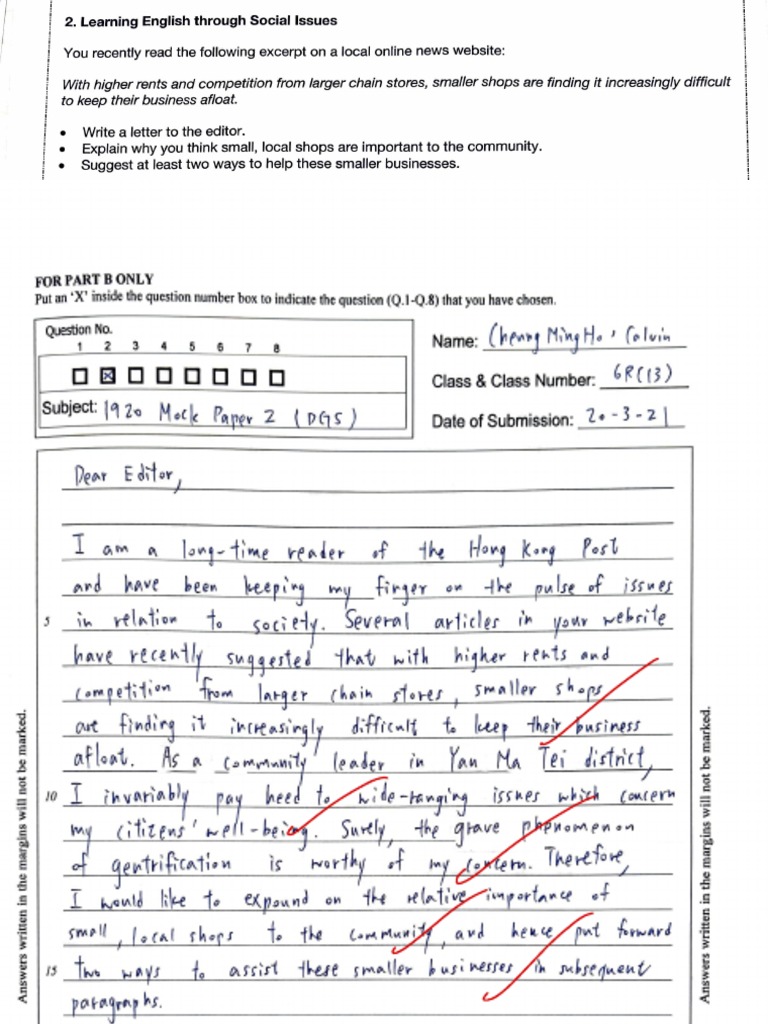 2. Learning English through Social Issues
You recently read the following excerpt on a local online news website:
With higher rents and competition from larger chain stores, smaller shops are finding it increasingly difficult
to keep their business afloat.
• Write a letter to the editor.
• Explain why you think small, local shops are important to the community.
• Suggest at least two ways to help these smaller businesses.
FOR PART B ONLY
Put an 'X' inside the question number box to indicate the question (Q.1-Q.8) that you have chosen.
Question No.
1 2 3 4 5 6 7 8
Subject: 1920 Mock Paper 2 (DGS)
Name: Cheung Ming Ho, Calvin
Class & Class Number: 6R(13)
Date of Submission: 20-3-21
Dear Editor,
I am a long-time reader of the Hong Kong Post
and have been keeping my finger on the pulse of issues
5 in relation to society. Several articles in your website
have recently suggested that with higher rents and
competition from larger chain stores, smaller shops
are finding it increasingly difficult to keep their business
afloat. As a community leader in Yau Ma Tei district,
10 I invariably pay heed to wide-ranging issues which concern
my citizens' well-being. Surely, the grave phenomenon
of gentrification is worthy of my concern. Therefore,
I would like to expound on the relative importance of
small, local shops to the community, and hence put forward
15 two ways to assist these smaller businesses in subsequent
paragraphs.
Answers written in the margins will not be marked.
Answers written in the margins will not be marked.